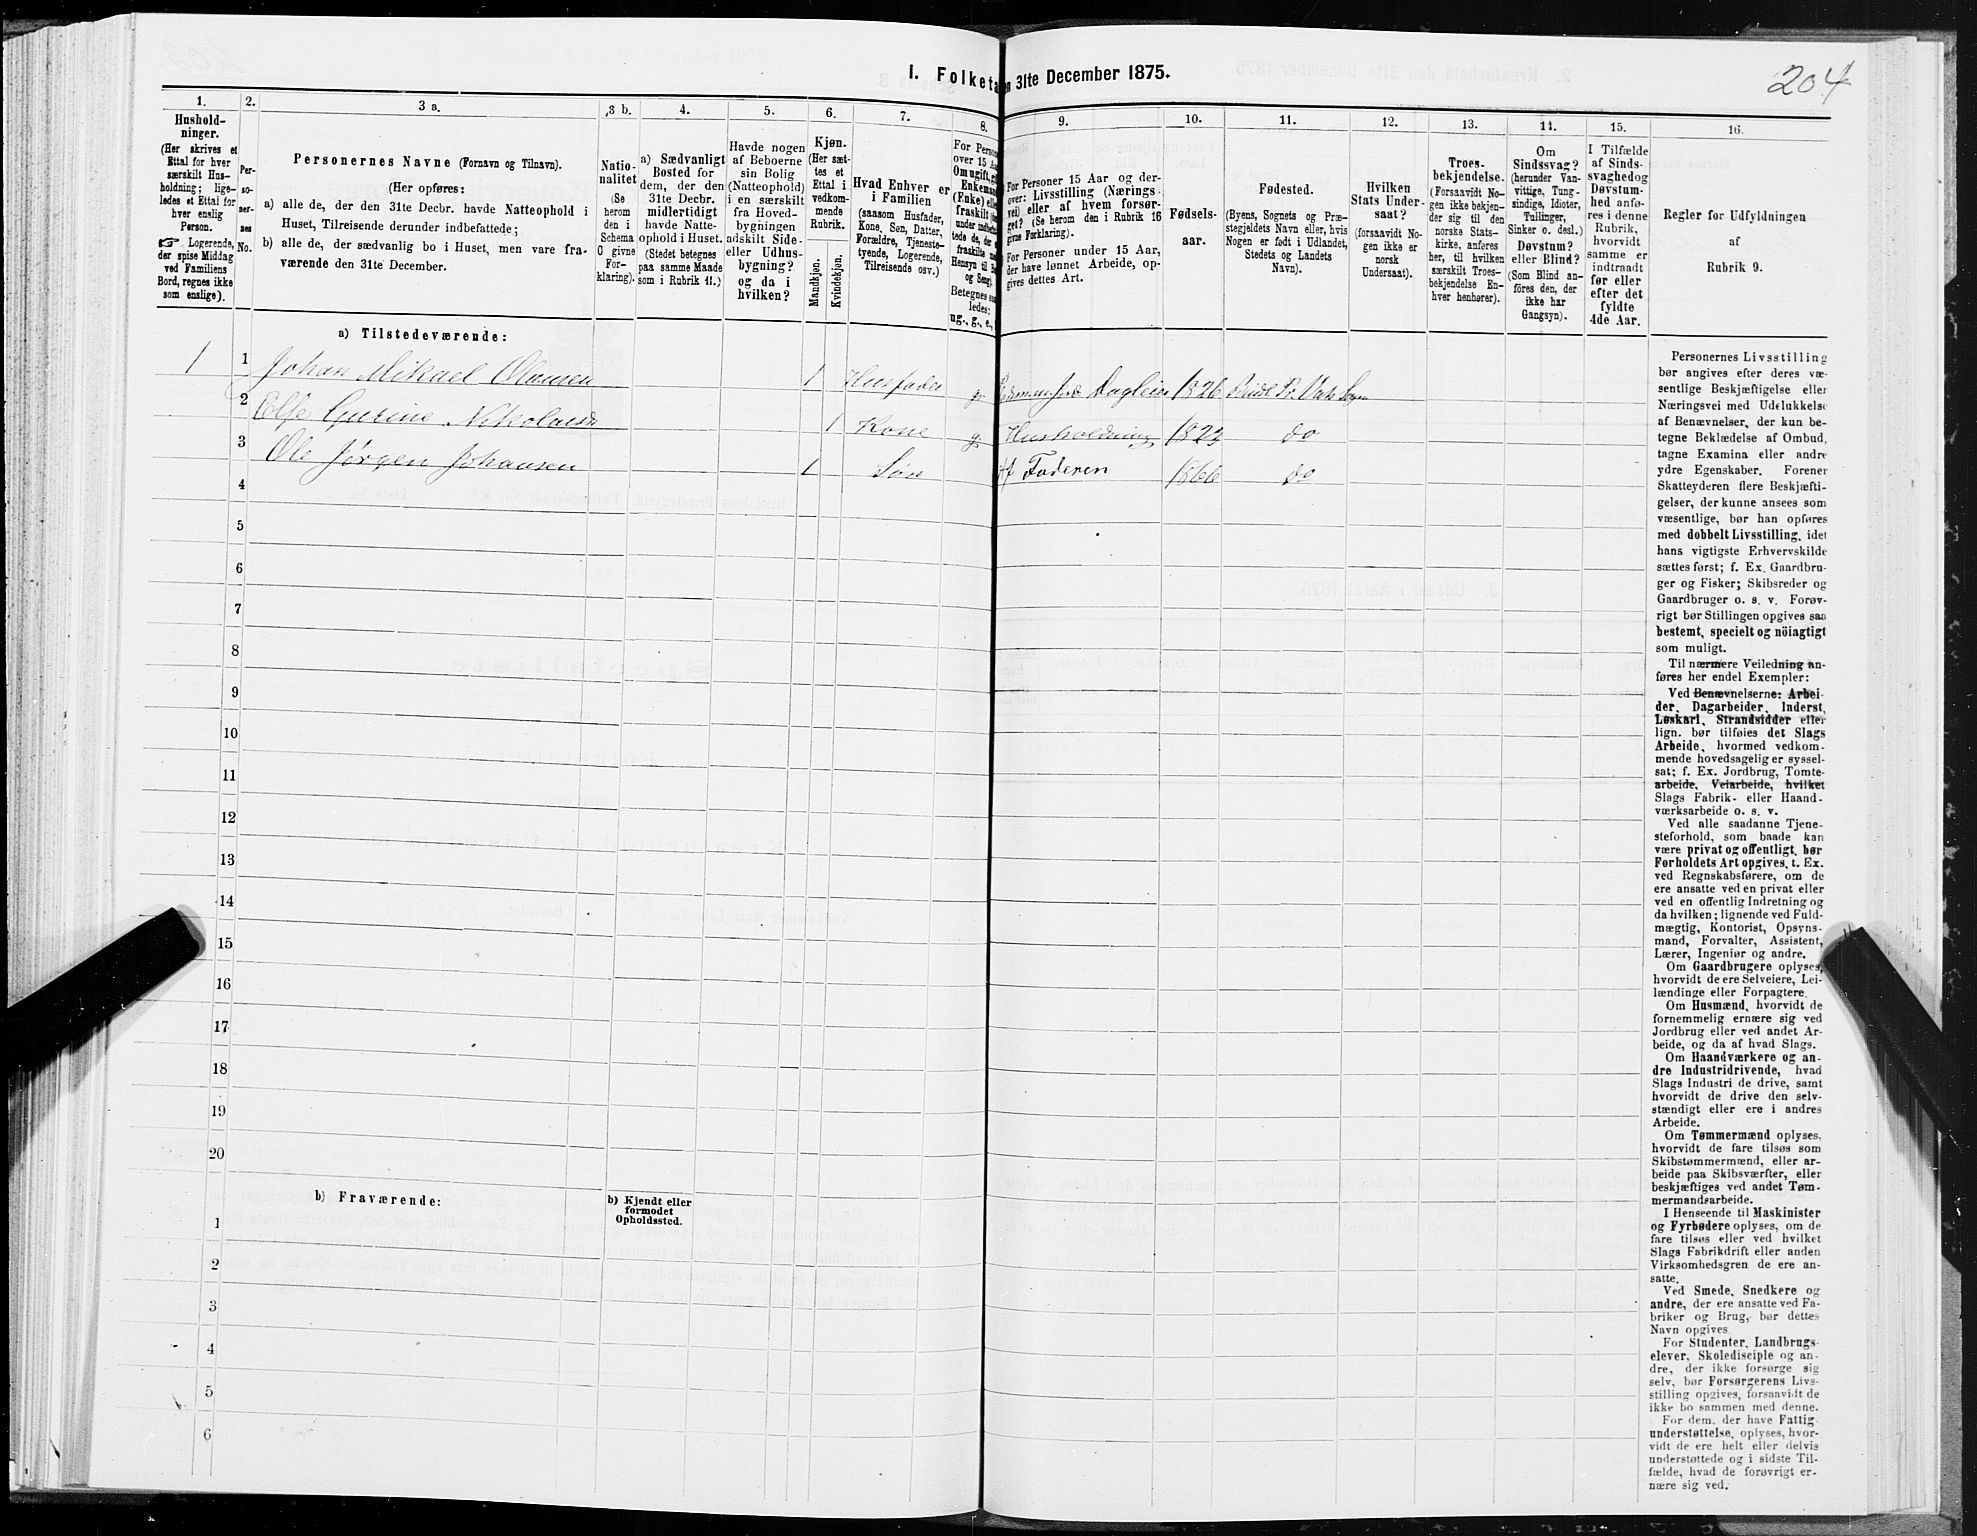 204
I. Folketa
en 31te December 1875.
1.
2.
3 a.
3 b.
4.
5.
6.
7.
8.
9.
10.
11.
12.
13.
14.
15.
16.
Hushold-
ninger.
(Her skrives et
Ettal for hver
særskilt Hus-
holdning; lige-
ledes et Ettal for
hver enslig
Person.
☞ Logerende,
der spise Middag
ved Familiens
Bord, regnes ikke
som enslige).
Per-
so-
ner-
nes
No.
Personernes Navne (Fornavn og Tilnavn).
(Her opføres:
a) alle de, der den 31te Decbr. havde Natteophold i
Huset, Tilreisende derunder indbefattede;
b) alle de, der sædvanlig bo i Huset, men vare fra-
værende den 31te December.
Natio-
nalitet
(Se
herom
den i
Schema
0 givne
For-
klaring).
a) Sædvanligt
Bosted for
dem, der den
31te Decbr.
midlertidigt
havde Natte-
ophold i Huset.
(Stedet betegnes
paa samme Maade
som i Rubrik 11.)
Havde nogen
af Beboerne
sin Bolig
(Natteophold)
i en særskilt
fra Hoved-
bygningen
adskilt Side-
eller Udhus-
bygning?
og da i
hvilken?
Kjøn.
(Her sæt-
tes et
Ettal i
vedkom-
mende
Rubrik.
Mandkjøn.
Kvindekjøn.
Hvad Enhver er
i Familien
(saasom Husfader,
Kone, Søn, Datter,
Forældre, Tjeneste-
tyende, Logerende,
Tilreisende osv.)
For Perso
over 15 A
Om ugift, gi
Enkema
(Enke) elle
fraskilt
under indbe
tede de, der
fraskilte m
Hensyn til B
og Seng).
Betegnes saa
ledes:
ug., g., e.,
For Personer 15 Aar og der-
over: Livsstilling (Nærings
vei) eller af hvem forsør-
get? (Se herom den i Rubrik 16
givne Forklaring).
For Personer under 15 Aar,
der have lønnet Arbeide, op-
gives dettes Art.
Fødsels-
aar.
Fødested.
(Byens, Sognets og Præ-
stegjeldets Navn eller, hvis
Nogen er født i Udlandet,
Stedets og Landets
Navn).
Hvilken
Stats Under-
saat?
(forsaavidt No-
gen ikke er
norsk
Undersaat).
Troes-
bekjendelse.
(Forsaavidt No-
gen ikke bekjen-
der sig til den
norske Stats-
kirke, anføres
her, til hvilken
særskilt Troes-
bekjendelse En-
hver henhører).
Om
Sindssvag?
(herunder Van-
vittige, Tung-
sindige, Idioter,
Tullinger,
Sinker o. desl.)
Døvstum?
eller Blind?
(Som Blind an-
føres den, der
ikke har
Gangsyn).
I Tilfælde
af Sinds-
svaghed og
Døvstum-
hed anfø-
res i denne
Rubrik,
hvorvidt
samme er
indtraadt
før eller
efter det
fyldte
4de Aar.
Regler for Udfyldningen
af
Rubrik 9.
a) Tilstedeværende:
1 1 Johan Mikael Olausen 1 Husfader g. Dagleier 1826
2 Else Gurine Nikolausd 1 Kone g. Husholdning 1823 do
3 Ole Jørgen Johansen 1 Søn Af Faderen 1866 do
4
5
6
7
8
9
10
11
12
13
14
15
16
17
18
19
20
b) Fraværende:
b) Kjendt eller
formodet
Opholdssted.
1
2
3
4
5
6
Personernes Livsstilling
bør angives efter deres væ-
sentlige Beskjæftigelse eller
Næringsvei med Udelukkelse
af Benævnelser, der kun be-
tegne Beklædelse af Ombud,
tagne Examina eller andre
ydre Egenskaber. Forener
Skatteyderen flere Beskjæfti-
gelser, der kunne ansees som
væsentlige, bør han opføres
med dobbelt Livsstilling, idet
hans vigtigste Erhvervskilde
sættes først; f. Ex. Gaardbru-
ger og Fisker; Skibsreder og
Gaardbruger o. s. v. Forøv-
rigt bør Stillingen opgives saa
bestemt, specielt og nöiagtigt
som muligt.
Til nærmere Veiledning an-
føres her endel Exempler:
Ved Benævnelserne: Arbei-
der, Dagarbeider, Inderst,
Løskarl, Strandsidder eller
lign. bør tilføies det Slags
Arbeide, hvormed vedkom-
mende hovedsagelig er syssel-
sat; f. Ex. Jordbrug, Tomte-
arbeide, Veiarbeide, hvilket
Slags Fabrik- eller Haand-
værksarbeide o. s. v.
Ved alle saadanne Tjene-
steforhold, som baade kan
være privat og offentligt, bør
Forholdets Art opgives, t. Ex.
ved Regnskabsførere, om de
ere ansatte ved en privat eller
ved en offentlig Indretning og
da hvilken; lignende ved Fuld-
mægtig, Kontorist, Opsyns-
mand, Forvalter, Assistent,
Lærer, Ingeniør og andre.
Om Gaardbrugere oplyses,
hvorvidt de ere Selveiere, Lei-
lændinge eller Forpagtere.
Om Husmænd, hvorvidt de
fornemmelig ernære sig ved
Jordbrug eller ved andet Ar-
beide, og da af hvad Slags.
Om Haandværkere og an-
dre Industridrivende, hvad
Slags Industri de drive, samt
hvorvidt de drive den selv-
stændigt eller ere i andres
Arbeide.
Om Tømmermænd oplyses,
hvorvidt de fare tilsøs som
Skibstømmermænd, eller ar-
beide paa Skibsværfter, eller
beskjæftiges ved andet Tøm-
mermandsarbeide.
I Henseende til Maskinister
og Fyrbødere oplyses, om de
fare tilsøs eller ved hvilket
Slags Fabrikdrift eller anden
Virksomhedsgren de ere an-
satte.
Ved Smede, Snedkere og
andre, der ere ansatte ved Fa-
briker og Brug, bør dettes
Navn opgives.
For Studenter, Landbrugs-
elever, Skoledisciple og an-
dre, der ikke forsørge sig
selv, bør Forsørgerens Livs-
stilling opgives, forsaavidt de
ikke bo sammen med denne.
For dem, der have Fattig-
understøttelse, oplyses, hvor-
vidt de ere helt eller delvis
understøttede og i sidste Til-
fælde, hvad de forøvrigt er-
nære sig ved.